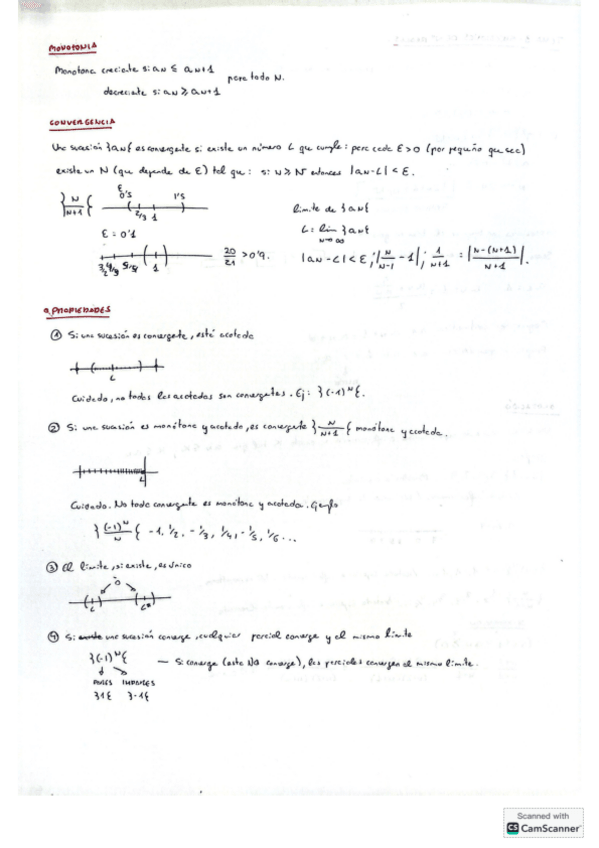 MONOTONIA
Monotona creciente si an ≤ an+1
para todo N.
decreciente si an ≥ an+1
CONVERGENCIA
Una sucesión }an{ es convergente si existe un número L que cumple: para cada ε>0 (por pequeño que sea)
existe un N (que depende de ε) tal que: si n ≥ N entonces |an-L| < ε.
}N/N+1{ ε 0'5 2/3 1 1'5
límite de }an{
ε = 0'1
L = lim }an{
N→∞
1 20/21 > 0'9.
|an-L| < ε; |N/N-1 - 1|; 1/N+1 = |N-(N+1)/N+1|.
PROPIEDADES
① Si una sucesión es convergente, está acotada
L
Cuidado, no todas las acotadas son convergentes. Ej: }(-1)^N{.
② Si una sucesión es monótona y acotada, es convergente }N/N+1{ monótona y acotada.
L
Cuidado. No toda convergente es monótona y acotada. Ejemplo
}(-1)^N/N{ -1, 1/2, -1/3, 1/4, -1/5, 1/6...
③ El límite, si existe, es único
L
④ Si una sucesión converge, cualquier parcial converge y al mismo límite
}(-1)^N{ — Si converge (este NO converge), las parciales convergen al mismo límite.
PARES IMPARES
}1{ }-1{
Scanned with
CS CamScanner